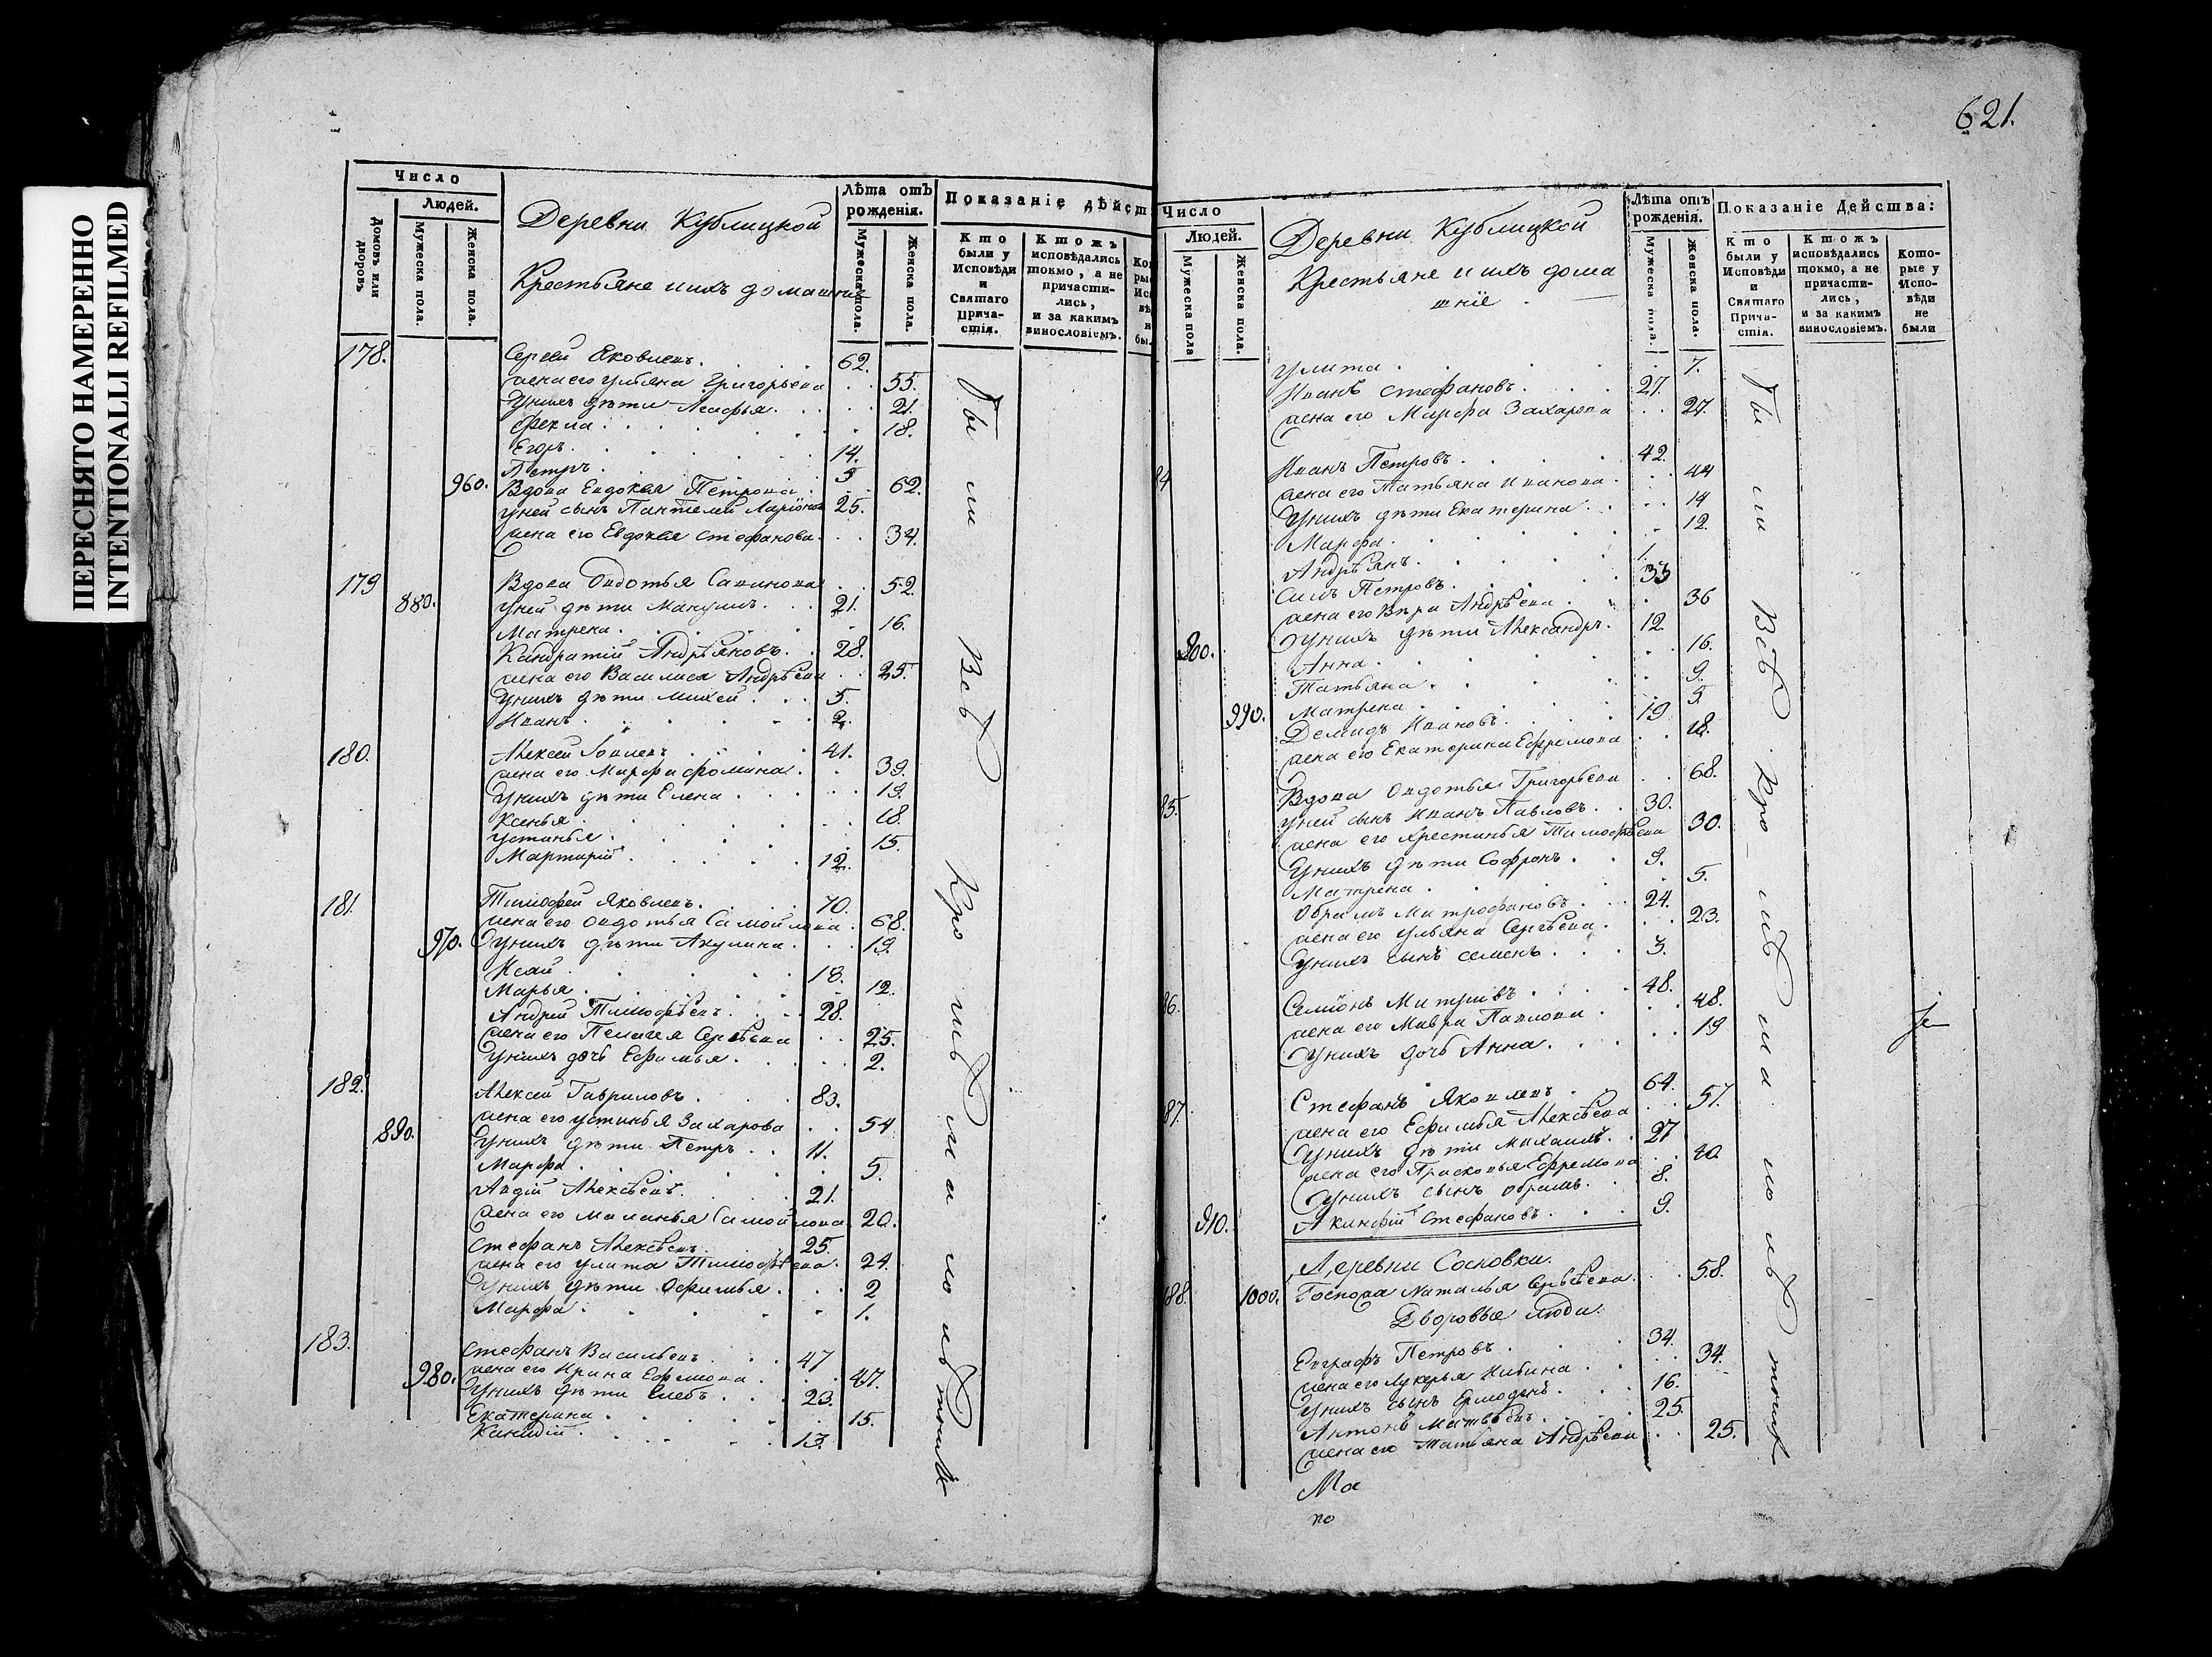 ПЕРЕСНЯТО НАМЕРЕННО
INTENTIONALLI REFILMED
Число
Людей.
Домовъ или дворовъ
Мужеска пола.
Женска пола.
Деревни Кублицкой
Крестьяне и ихъ домашніе
Лѣта отъ рожденія.
Мужеска пола.
Женска пола.
Показаніе дѣйст
Кто были у Исповѣди и Святаго Прича-стія.
Ктожъ исповѣдались токмо, а не причасти-лись, и за какимъ винословіемъ.
178. Сергей Яковлевъ. 62.
жена его Ульяна Григорьева 55.
У нихъ дѣти Агафья. 21.
Фекла. 18.
Егоръ. 14.
Петръ. 9
960. Вдова Евдокея Петрова 62.
у ней сынъ Пантелей Ларіоновъ 25.
жена его Евдокея Стефанова. 34.
179 Вдова Овдотья Савинова 52.
880. у ней дѣти 21.
Матрена. 16.
Кандратій Андрѣяновъ. 28.
жена его Василиса Андрѣева 25.
У нихъ дѣти Михей 5.
Иванъ. 2.
180. Алексей 41.
жена его Марфа Фомина. 39.
У нихъ дѣти Елена 19.
Ксенья. 18.
Устинья. 15.
Мартирій. 12.
181. Тимофей Яковлевъ. 70.
жена его Овдотья Самойлова. 68.
970. У нихъ дѣти Акулина. 19.
Исай. 18.
Марья. 12.
Андрей Тимофѣевъ. 28.
жена его Пелагея Сергѣева 25.
У нихъ дочь Ефимья. 2.
182. Алексей Гавриловъ. 83.
жена его Устинья Захарова 54
890. У нихъ дѣти Петръ 11.
Марфа. 5.
Авдій Алексѣевъ. 21.
жена его Маланья Самойлова 20.
Стефанъ Алексѣевъ. 25.
жена его Улита Тимофѣева. 24.
У нихъ дѣти Офимья. 2
Марфа. 1.
183. Стефанъ Васильевъ. 47
980. жена его Ирина Ефремова. 47.
У нихъ дѣти Глебъ. 23.
Екатерина. 15.
13.
Всѣ
621.
Число
Людей.
Мужеска пола
Женска пола.
Деревни Кублицкой
Крестьяне и ихъ дома
шніе
Лѣта отъ рожденія.
Мужеска пола.
Женска пола.
Показаніе Дейсшва:
Кто были у Исповѣди и Святаго Прича-стія.
Ктожъ исповѣдались токмо, а не причасти-лись, и за какимъ винословіемъ.
Кото-рые у Испо-вѣди не были
Улита. 7.
Иванъ Стефановъ. 27.
жена его Марфа Захарова 27.
84 Иванъ Петровъ. 42.
жена его Татьяна Иванова. 44
У нихъ дѣти Екатерина. 14
Марфа. 12.
Андрѣянъ. 1.
Петровъ. 33
жена его Вѣра Андрѣева. 36
900. У нихъ дѣти Александръ. 12.
Анна. 16.
Татьяна. 9.
990. Матрена. 5.
Демидъ Ивановъ. 19
жена его Екатерина Ефремова 18.
85. Вдова Овдотья Григорьева 68.
у ней сынъ Иванъ Павловъ. 30.
жена его Хрестинья Тимофѣева 30.
У нихъ дѣти Софронъ. 9.
Матрена. 5.
Обрамъ Митрофановъ. 24.
жена его Ульяна Сергѣева. 23.
У нихъ сынъ Семенъ. 3.
86. Семіонъ 48.
жена его Мавра Павлова. 48.
У нихъ дочь Анна. 19
87. Стефанъ Яковлевъ. 64.
жена его Ефимья Алексѣева 57.
У нихъ дѣти Михаилъ. 27
жена его Прасковья Ефремова 40.
У нихъ сынъ Обрамъ. 8.
910. Акинфій Стефановъ. 9.
Деревни Сосновки.
188. 1000. Госпожа Наталья Сергѣева. 58.
Дворовые люди.
Евграфъ Петровъ. 34.
жена его Лукерья 34.
У нихъ сынъ 16.
Антонъ Матвѣевъ. 25.
жена его Татьяна Андрѣева 25.
Ма
по
Всѣ